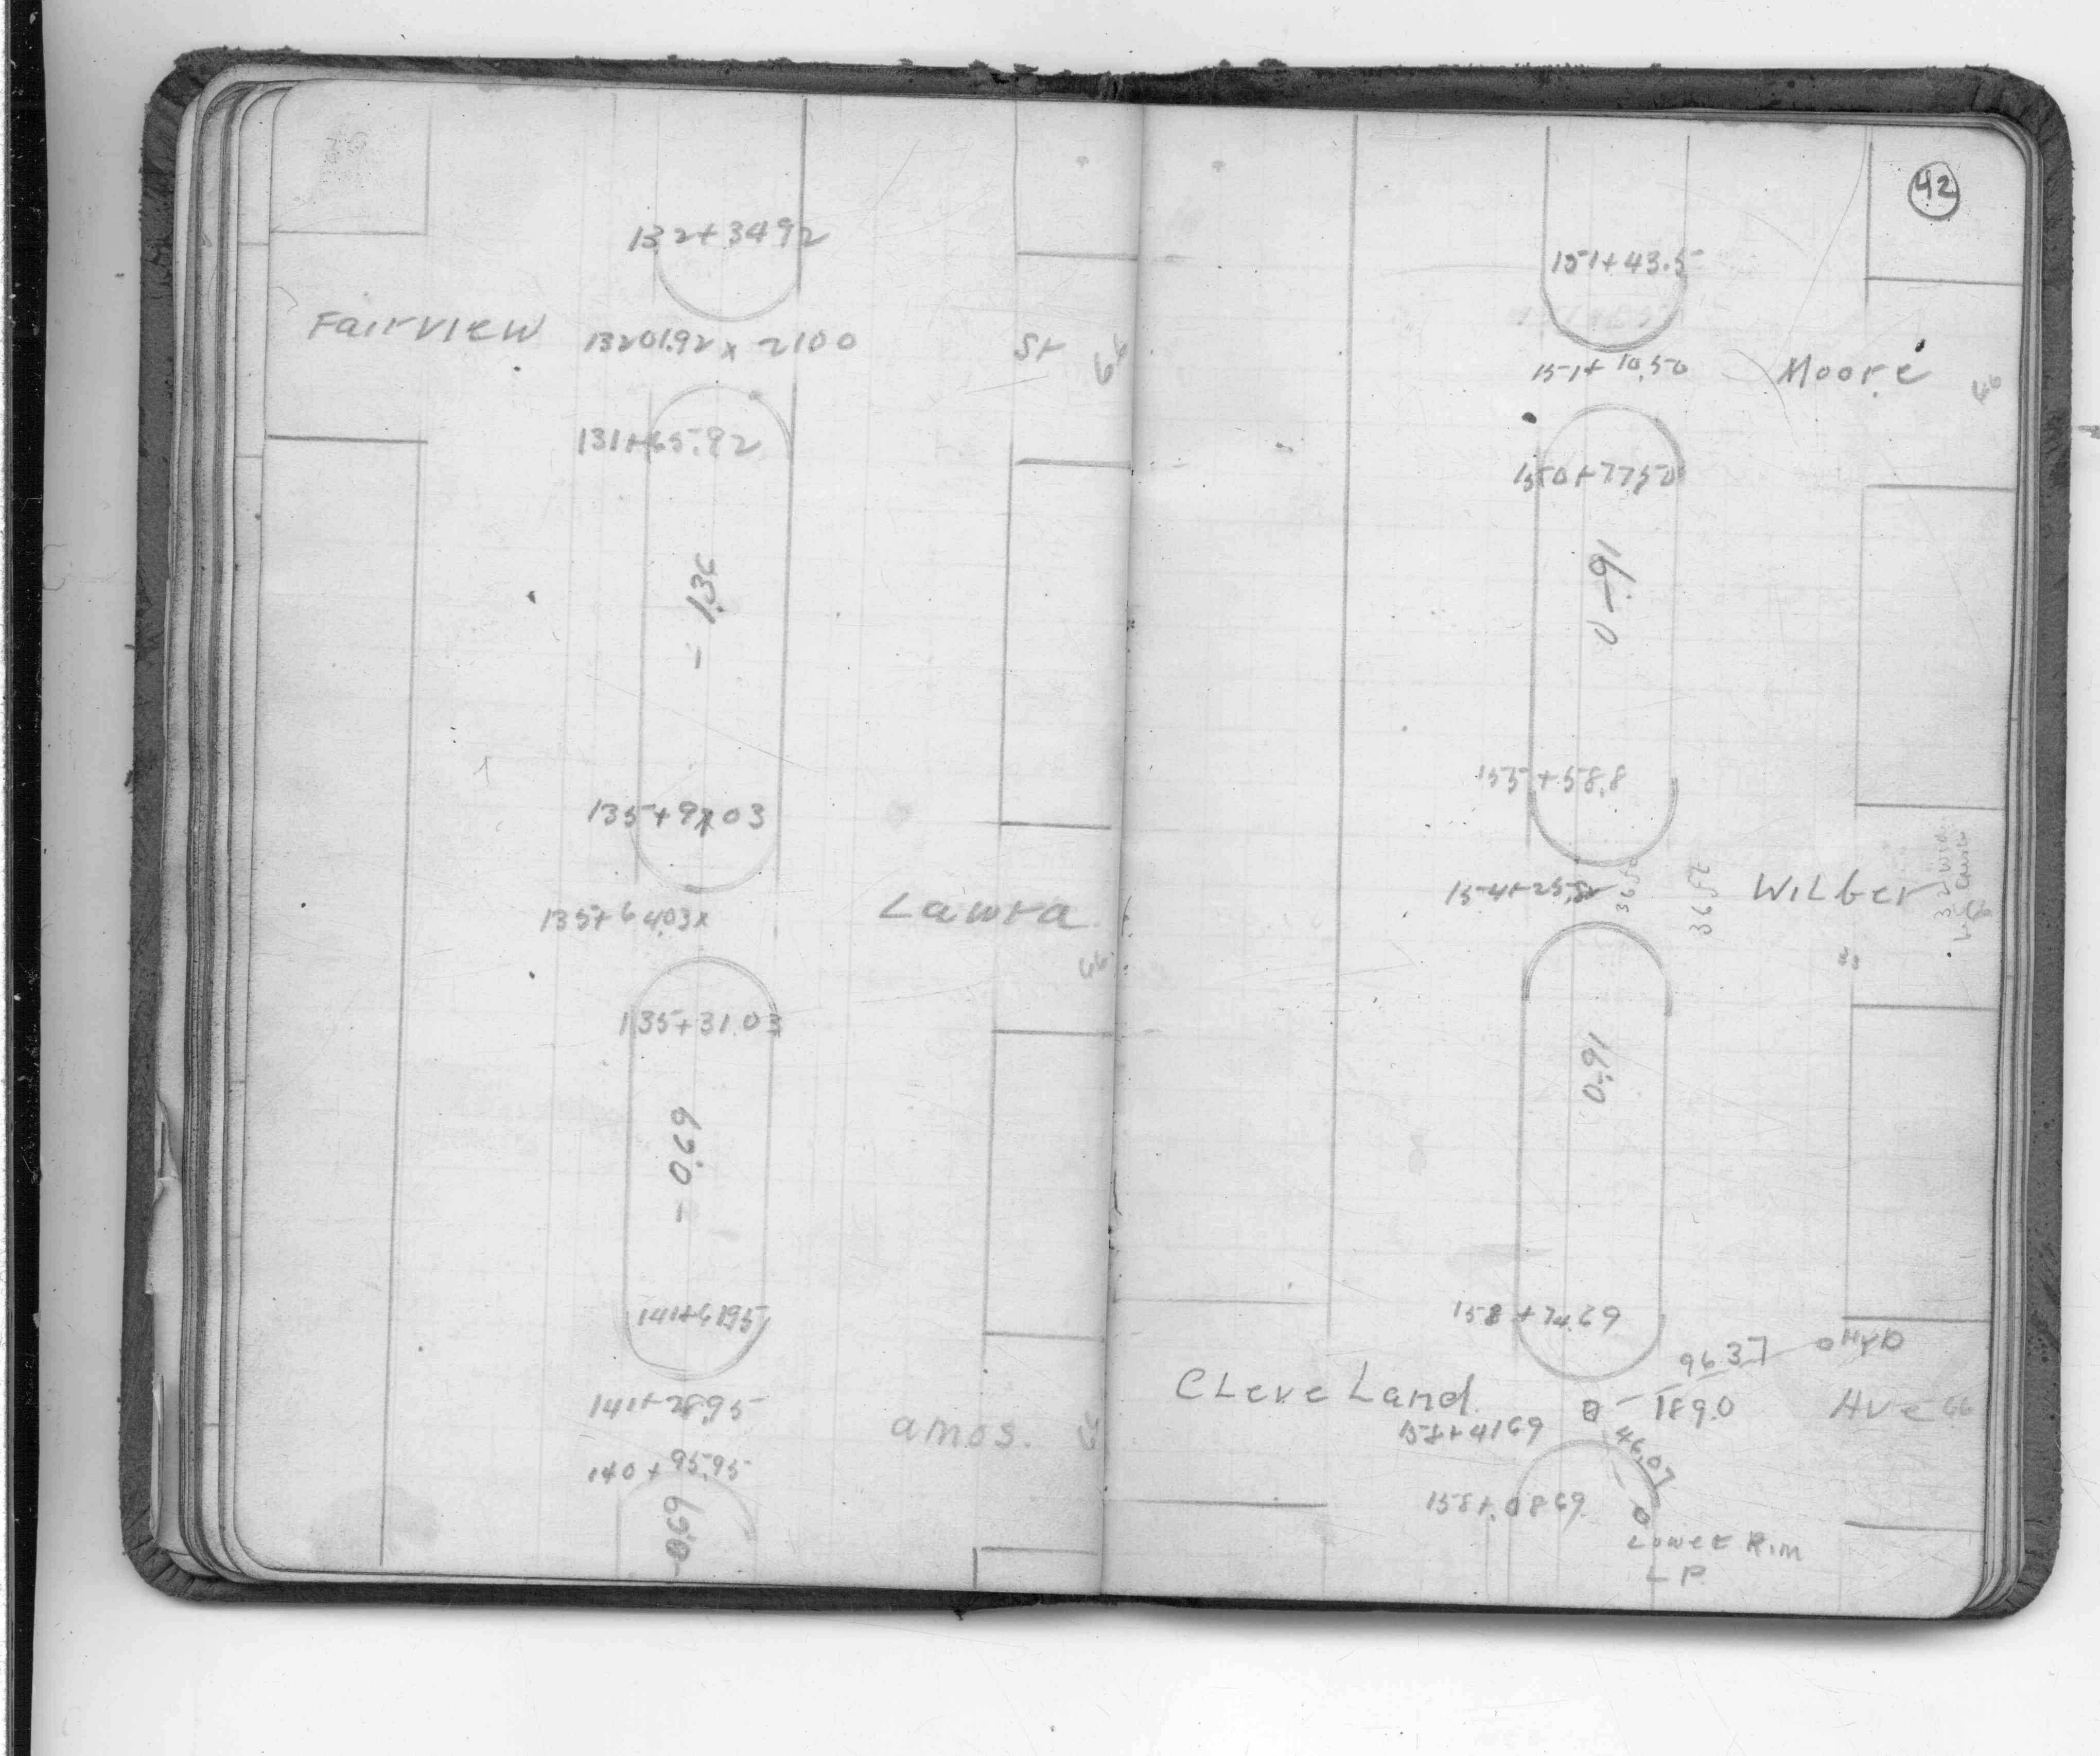 132+3492
Fairview 13201.92 x 2100 St 66
131+65.92
- 1.36
135+97.03
135+64.03x Lawra
66
135+31.03
- 0.69
141+61.95
141+28.95
amos.
140+95.95
-0.69
42
151+43.5
151+10.50 Moore 66
150+77.50
0-.91
155+58.8
154+25.5 36 ft 36 ft Wilber
33
0.91
158+74.69
96.37 o HYD
CLeveLand 189.0 Ave 66
46.07
158+.0869
Lower Rim
L P